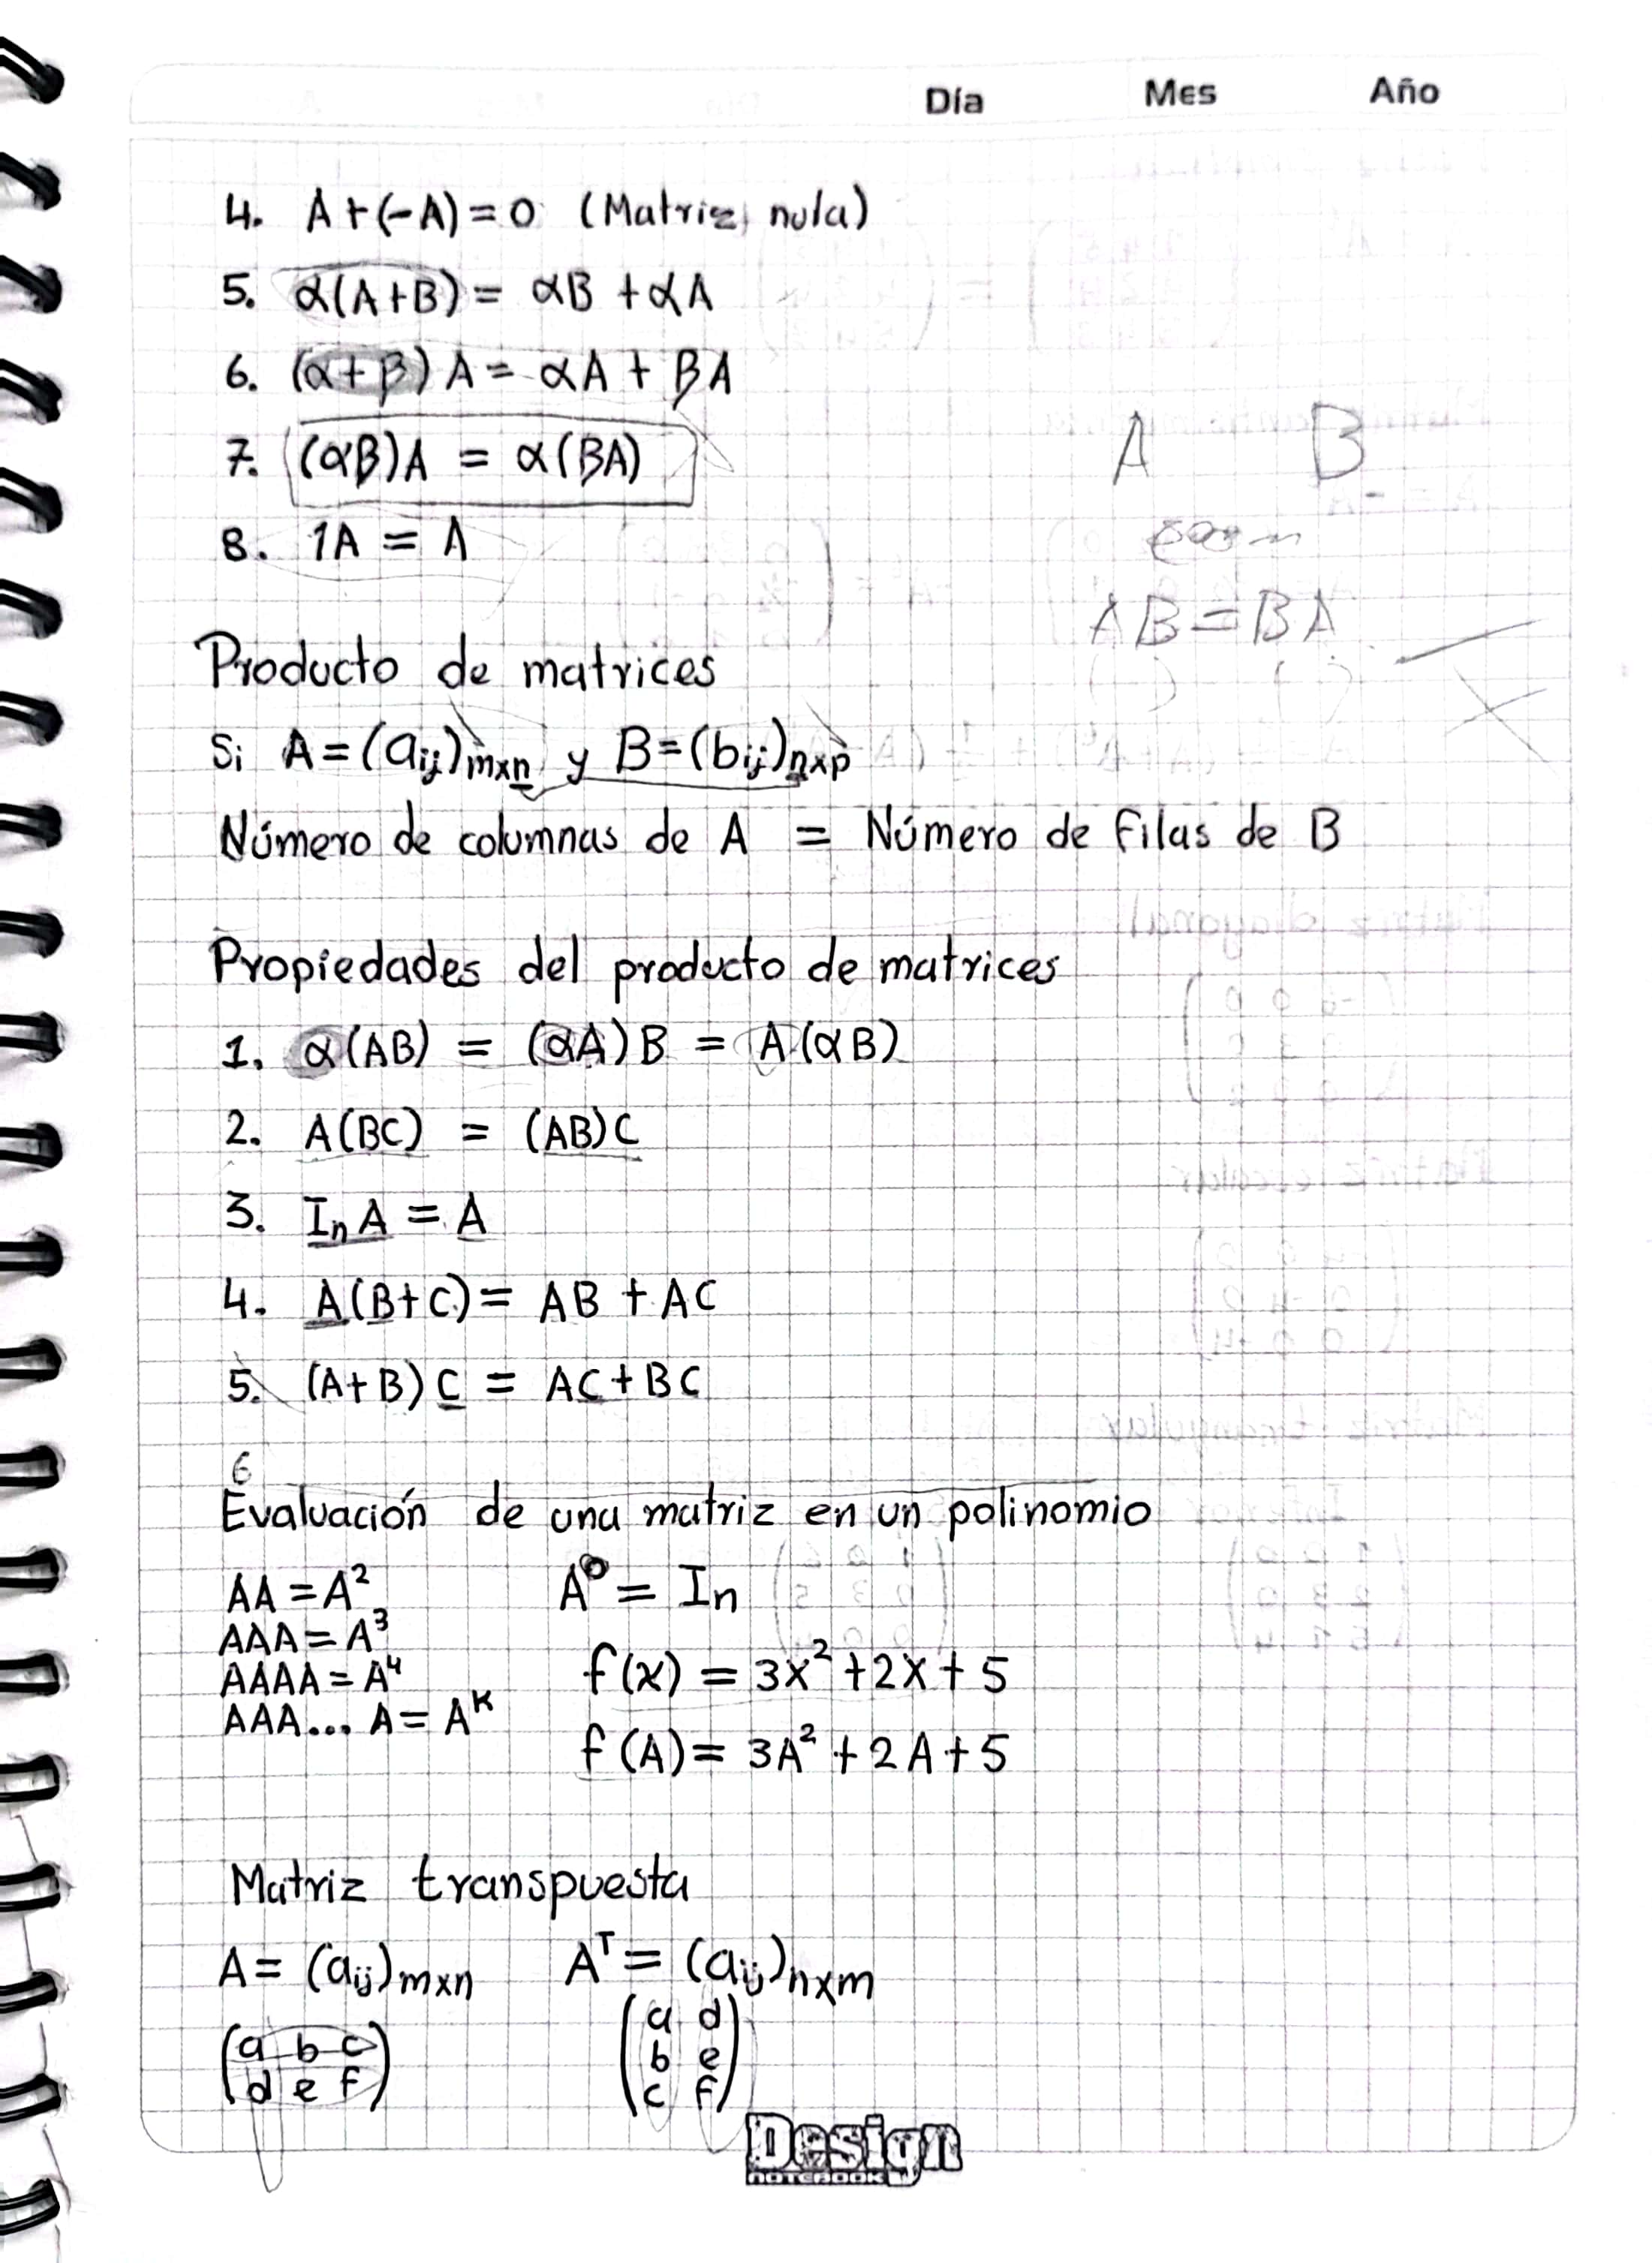 Día Mes Año
4. A+(-A)=0 (Matriz nula)
5. α(A+B) = αB + αA
6. (α+β) A = αA + βA
7. (αβ)A = α(βA)
8. 1A = A
A B
AB=BA
Producto de matrices
Si A=(aij)mxn y B=(bij)nxp
Número de columnas de A = Número de filas de B
Propiedades del producto de matrices
1. α(AB) = (αA)B = A(αB)
2. A(BC) = (AB)C
3. In A = A
4. A(B+C)= AB + AC
5. (A+B) C = AC+BC
6
Evaluación de una matriz en un polinomio
AA = A²
AAA = A³
AAAA = A⁴
AAA... A = Aᴷ
A⁰ = In
f(x) = 3x²+2x+5
f(A) = 3A²+2A+5
Matriz transpuesta
A= (aij)mxn Aᵀ= (aij)nxm
a b c
d e f
a d
b e
c f
Design
NOTEBOOK